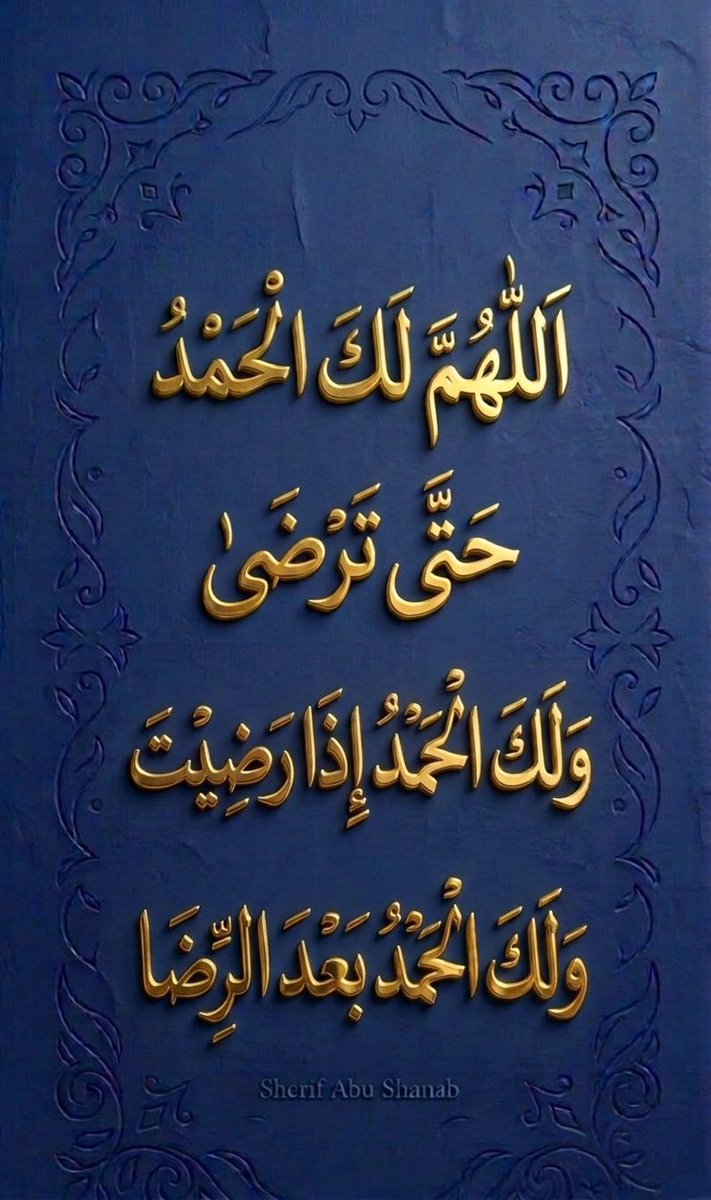 اَللّٰهُمَّ لَكَ الْحَمْدُ
حَتَّى تَرْضَىٰ
وَلَكَ الْحَمْدُ إِذَا رَضِيْتَ
وَلَكَ الْحَمْدُ بَعْدَ الرِّضَا
Sherif Abu Shanab